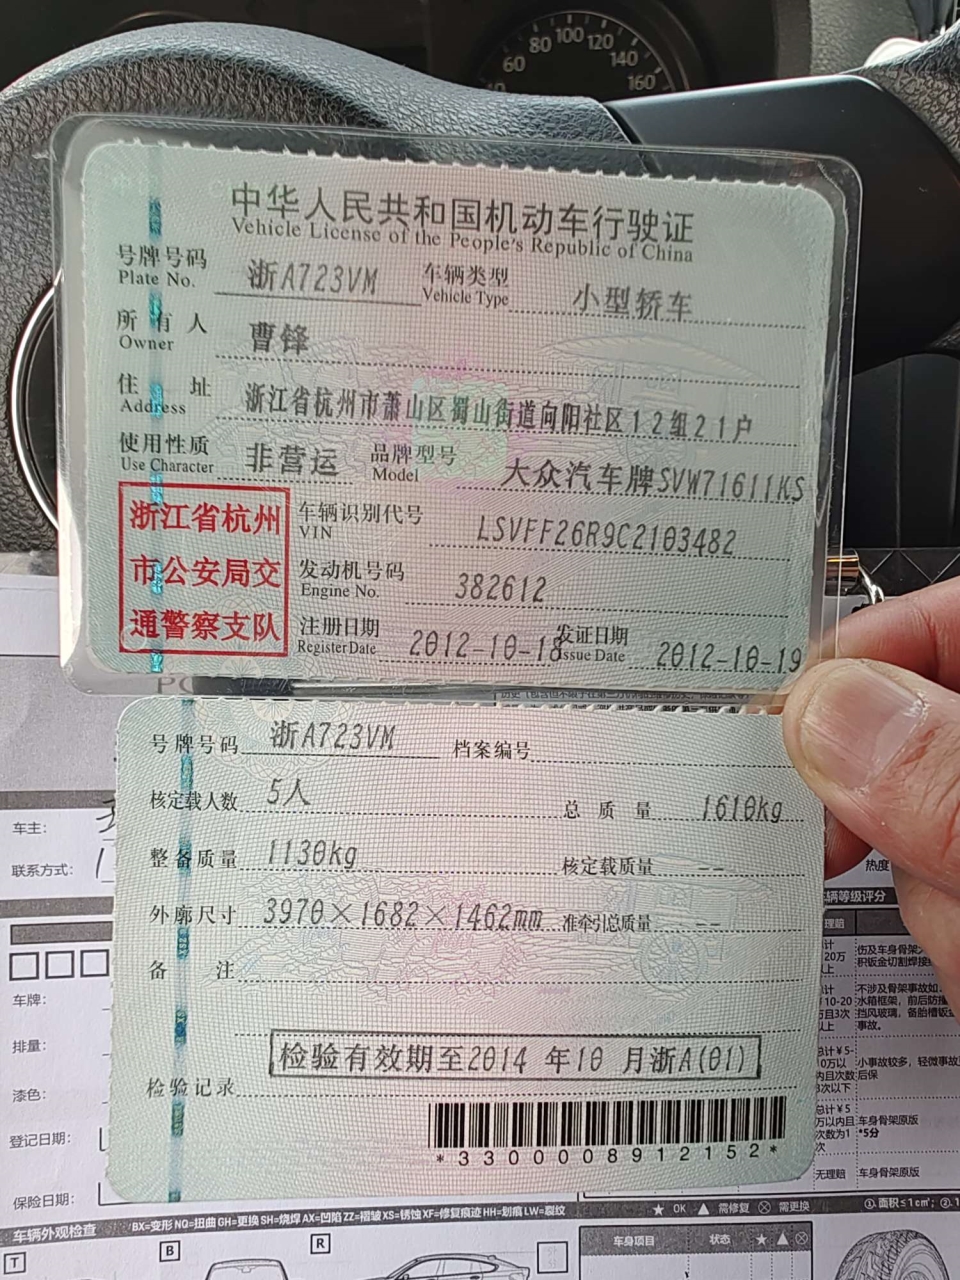 80 100 120
60 140
160
中华人民共和国机动车行驶证
Vehicle License of the People's Republic of China
号牌号码 浙A723VM 车辆类型 小型轿车
Plate No. Vehicle Type
所有人 曹锋
Owner
住址 浙江省杭州市萧山区蜀山街道向阳社区12组21户
Address
使用性质 非营运 品牌型号 大众汽车牌SVW71611KS
Use Character Model
浙江省杭州
市公安局交
通警察支队
车辆识别代号 LSVFF26R9C2103482
VIN
发动机号码 382612
Engine No.
注册日期 2012-10-18 发证日期 2012-10-19
Register Date Issue Date
号牌号码 浙A723VM 档案编号
核定载人数 5人 总质量 1610kg
整备质量 1130kg 核定载质量 --
外廓尺寸 3970×1682×1462mm 准牵引总质量 --
备注
检验有效期至2014年10月浙A(01)
检验记录
*3300008912152*
车主:
联系方式:
车牌:
排量:
漆色:
登记日期:
保险日期:
热度
车辆等级评分
理赔
伤及车身骨架
积钣金切割焊接
不涉及骨架事故如
水箱框架，前后防撞
挡风玻璃，备胎槽钣金
事故。
小事故较多，轻微事故
后保
车身骨架原版
*5分
无理赔 车身骨架原版
★ OK ▲ 需修复 ⊗ 需更换
①.面积≤1cm²;
车辆外观检查 BX=变形 NQ=扭曲 GH=更换 SH=烧焊 AX=凹陷 ZZ=褶皱 XS=锈蚀 XF=修复痕迹 HH=划痕 LW=裂纹
T B R
车身项目 状态 ★ ▲ ⊗